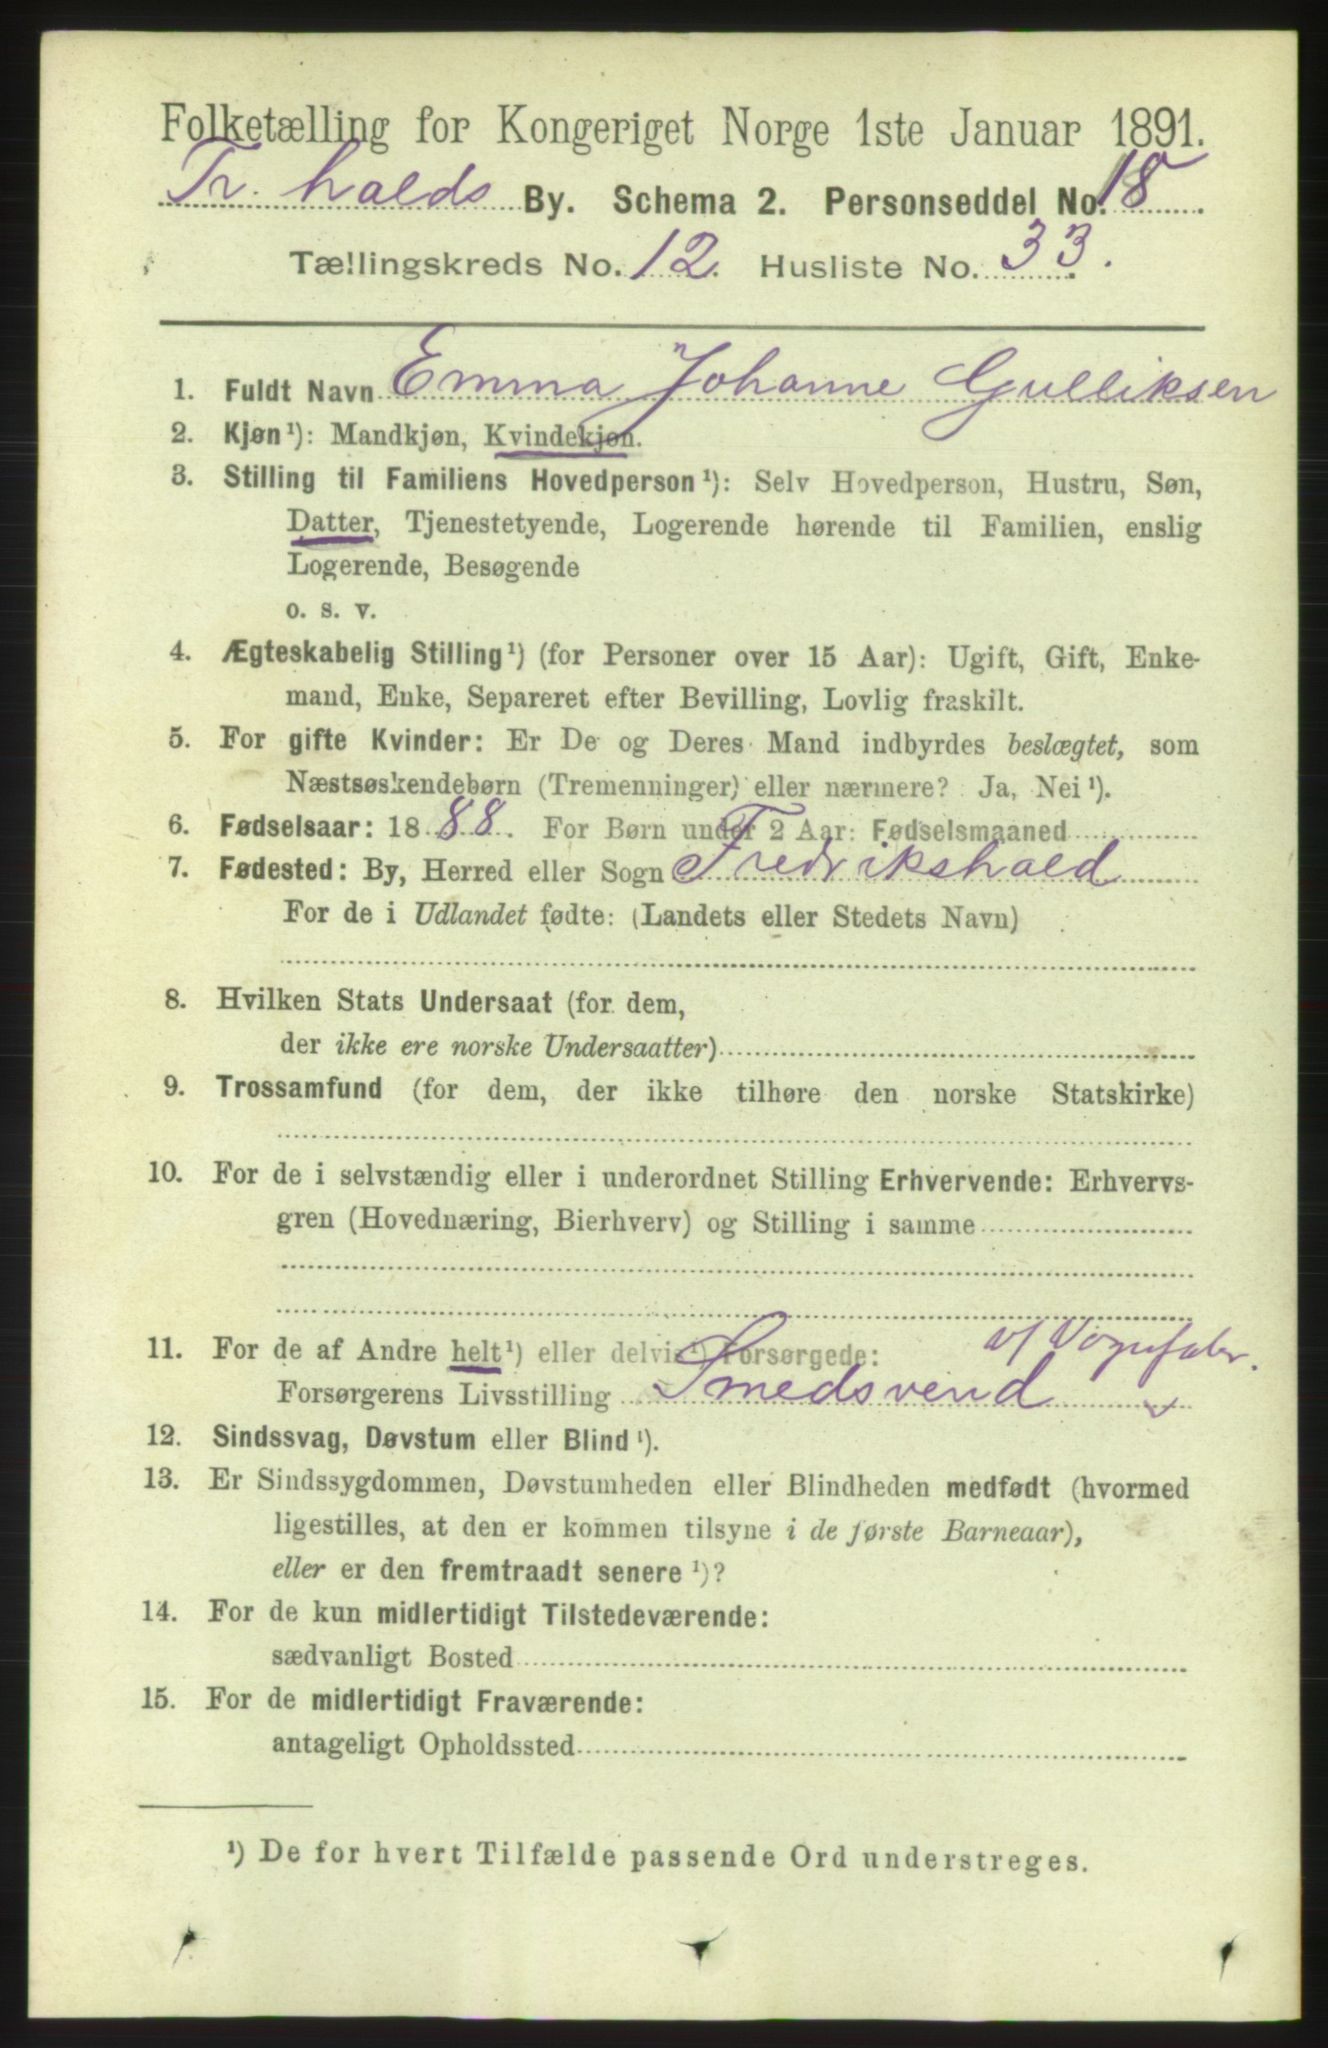 Folketælling for Kongeriget Norge 1ste Januar 1891.
Fr. halds By. Schema 2. Personseddel No. 18
Tællingskreds No. 12. Husliste No. 33.
1. Fuldt Navn Emma Johanne Gulliksen
2. Kjøn¹): Mandkjøn, Kvindekjøn.
3. Stilling til Familiens Hovedperson¹): Selv Hovedperson, Hustru, Søn,
Datter, Tjenestetyende, Logerende hørende til Familien, enslig
Logerende, Besøgende
o. s. v.
4. Ægteskabelig Stilling¹) (for Personer over 15 Aar): Ugift, Gift, Enke-
mand, Enke, Separeret efter Bevilling, Lovlig fraskilt.
5. For gifte Kvinder: Er De og Deres Mand indbyrdes beslægtet, som
Næstsøskendebørn (Tremenninger) eller nærmere? Ja, Nei¹).
6. Fødselsaar: 1888. For Børn under 2 Aar: Fødselsmaaned
7. Fødested: By, Herred eller Sogn Fredrikshald
For de i Udlandet fødte: (Landets eller Stedets Navn)
8. Hvilken Stats Undersaat (for dem,
der ikke ere norske Undersaatter)
9. Trossamfund (for dem, der ikke tilhøre den norske Statskirke)
10. For de i selvstændig eller i underordnet Stilling Erhvervende: Erhvervs-
gren (Hovednæring, Bierhverv) og Stilling i samme
11. For de af Andre helt¹) eller delvis¹) Forsørgede: v/ Vognfabr.
Forsørgerens Livsstilling Smedsvend
12. Sindssvag, Døvstum eller Blind¹).
13. Er Sindssygdommen, Døvstumheden eller Blindheden medfødt (hvormed
ligestilles, at den er kommen tilsyne i de første Barneaar),
eller er den fremtraadt senere¹)?
14. For de kun midlertidigt Tilstedeværende:
sædvanligt Bosted
15. For de midlertidigt Fraværende:
antageligt Opholdssted
¹) De for hvert Tilfælde passende Ord understreges.